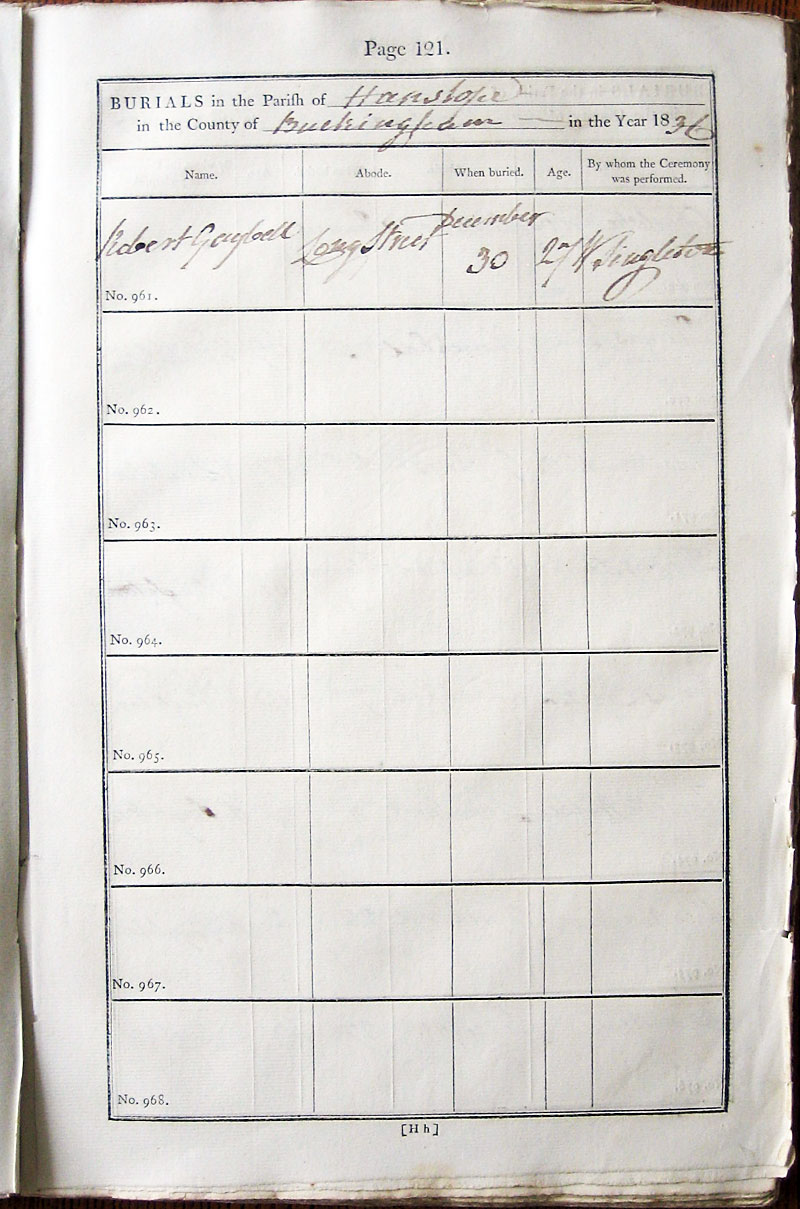 Page 121.
BURIALS in the Pariſh of Hanslope
in the County of Buckingham in the Year 1836
Name.
Abode.
When buried.
Age.
By whom the Ceremony
was performed.
Robert
Long Street
December
30
27
W Singleton
No. 961.
No. 962.
No. 963.
No. 964.
No. 965.
No. 966.
No. 967.
No. 968.
[H h]